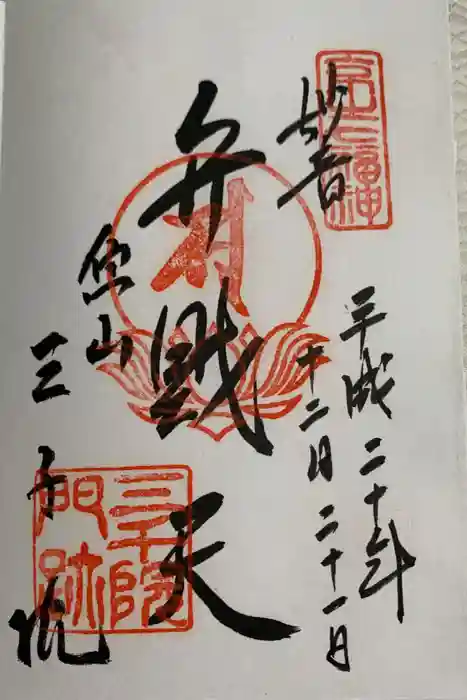 京七福神
妙音
平成二十年
十二月二十一日
弁戝天
魚山
三千院
三千院
門跡